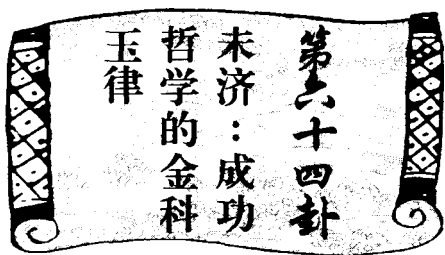 第六十四卦
未济：成功
哲学的金科
玉律